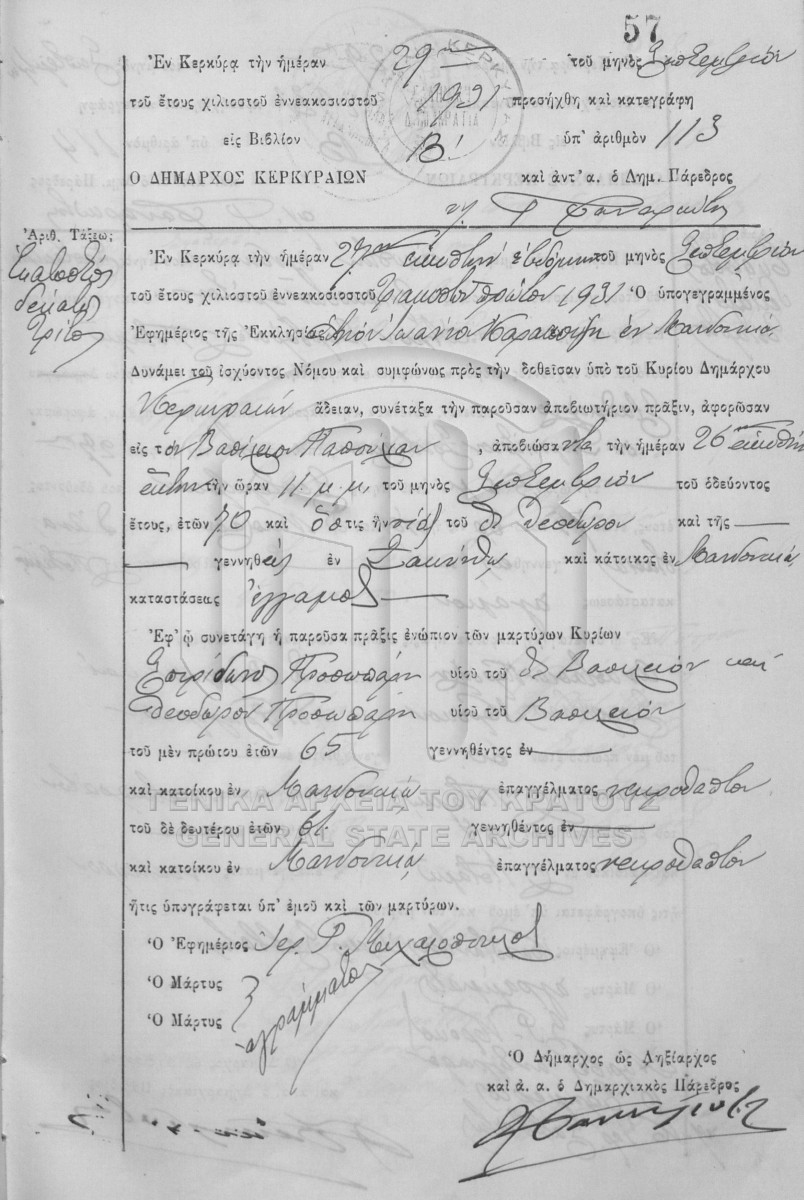 57
Ἐν Κερκύρᾳ τὴν ἡμέραν 29 τοῦ μηνὸς Σεπτεμβρίου
τοῦ ἔτους χιλιοστοῦ ἐννεακοσιοστοῦ 1931 προσήχθη καὶ κατεγράφη
εἰς Βιβλίον Β! ὑπ' ἀριθμὸν 113
Ο ΔΗΜΑΡΧΟΣ ΚΕΡΚΥΡΑΙΩΝ καὶ ἀντ' α. ὁ Δημ. Πάρεδρος
Ἀριθ. Τάξεως
Ἑκατοστὸς
δέκατος
τρίτος
Ἐν Κερκύρᾳ τὴν ἡμέραν 27ην εἰκοστὴν ἑβδόμην τοῦ μηνὸς Σεπτεμβρίου
τοῦ ἔτους χιλιοστοῦ ἐννεακοσιοστοῦ τριακοστοῦ πρώτου 1931 Ὁ ὑπογεγραμμένος
Ἐφημέριος τῆς Ἐκκλησίας ἐν Μανδουκίῳ
Δυνάμει τοῦ ἰσχύοντος Νόμου καὶ συμφώνως πρὸς τὴν δοθεῖσαν ὑπὸ τοῦ Κυρίου Δημάρχου
Κερκυραίων ἄδειαν, συνέταξα τὴν παροῦσαν ἀποβιωτήριον πρᾶξιν, ἀφορῶσαν
εἰς τὸν Βασίλειον , ἀποβιώσαντα τὴν ἡμέραν 26 εἰκοστὴν
ἕκτην τὴν ὥραν 11 μ.μ. τοῦ μηνὸς Σεπτεμβρίου τοῦ ὁδεύοντος
ἔτους, ἐτῶν 70 καὶ ὅστις ἦν υἱὸς τοῦ Θεοδώρου καὶ τῆς —
— γεννηθεὶς ἐν Ζακύνθῳ καὶ κάτοικος ἐν Μανδουκίῳ
καταστάσεως ἔγγαμος —
Ἐφ' ᾧ συνετάγη ἡ παροῦσα πρᾶξις ἐνώπιον τῶν μαρτύρων Κυρίων
Σπυρίδωνος υἱοῦ τοῦ Βασιλείου καὶ
Θεοδώρου υἱοῦ τοῦ Βασιλείου
τοῦ μὲν πρώτου ἐτῶν 65 γεννηθέντος ἐν —
καὶ κατοίκου ἐν Μανδουκίῳ ἐπαγγέλματος νεκροθάπτου
τοῦ δὲ δευτέρου ἐτῶν 61 γεννηθέντος ἐν —
καὶ κατοίκου ἐν Μανδουκίῳ ἐπαγγέλματος νεκροθάπτου
ἥτις ὑπογράφεται ὑπ' ἐμοῦ καὶ τῶν μαρτύρων.
Ὁ Ἐφημέριος Ἱερ. Μιχαλόπουλος
Ὁ Μάρτυς
Ὁ Μάρτυς
ἀγράμματοι
Ὁ Δήμαρχος ὡς Ληξίαρχος
καὶ ἀ. α. ὁ Δημαρχιακὸς Πάρεδρος
ΓΕΝΙΚΑ ΑΡΧΕΙΑ ΤΟΥ ΚΡΑΤΟΥΣ
GENERAL STATE ARCHIVES